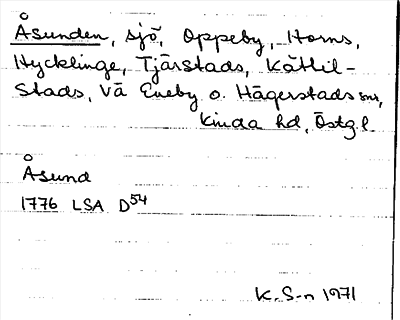 Åsunden, sjö, Oppeby, Horns,
Hycklinge, Tjärstads, Kättil-
stads, Vä Eneby o. Hägerstads snr,
Kinda hd, Östgl.
Åsund
1776 LSA D54
K. S-n 1971